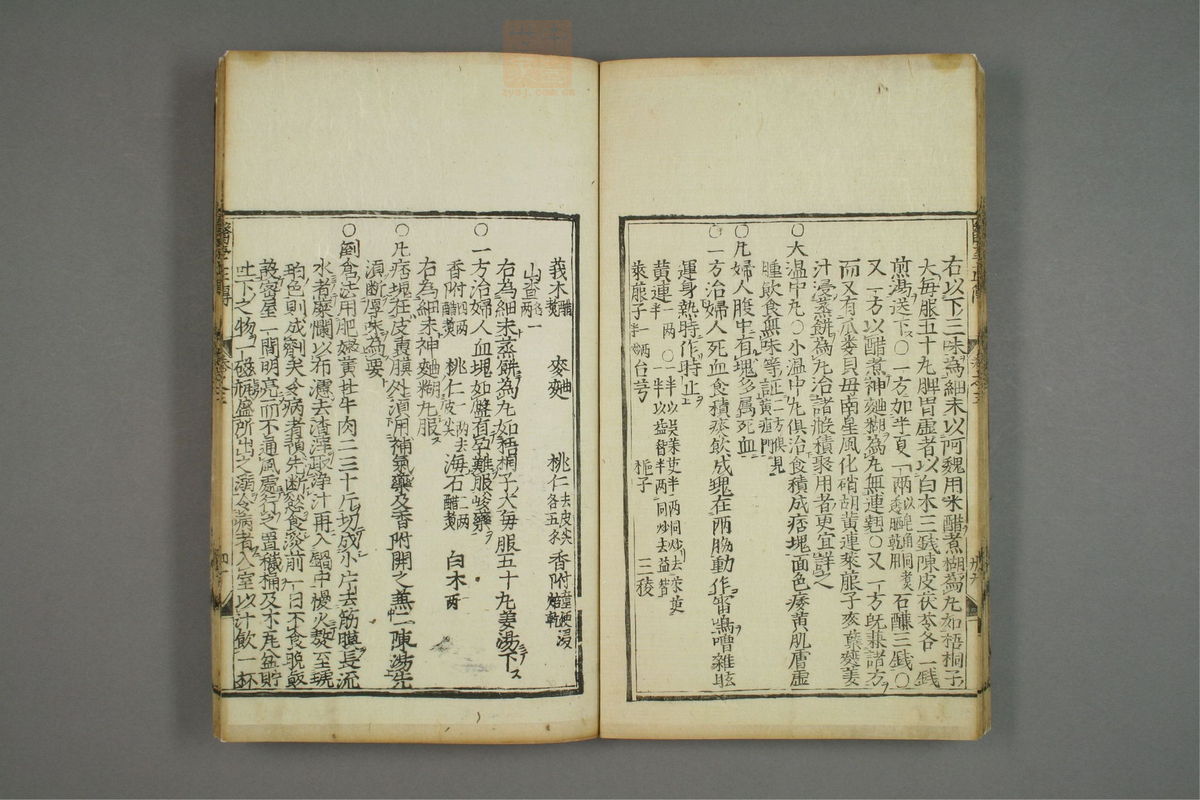 右以下三味為細末以阿魏用米醋煮糊為丸如梧桐子
大每服五十丸脾胃虛者以白朮三錢陳皮茯苓各一錢
煎湯送下〇一方如半夏一兩以皂角同煮透曬乾用石鹼三錢〇
又一方以醋煮神麯糊為丸無連翹〇又一方既兼諸方
而又有瓜蔞貝母南星風化硝胡黃連萊菔子麥蘗姜
汁浸蒸餅為丸治諸般積聚用者更宜詳之
〇大溫中丸〇小溫中丸俱治食積成痞塊面色痿黃肌膚虛
腫飲食無味等証二方俱見黃疸門
〇凡婦人腹中有塊多屬死血
〇一方治婦人死血食積痰飲成塊在兩脇動作雷鳴嘈雜眩
運身熱時作時止
黃連一兩半〇一半以吳茱萸半兩同炒去茱萸一半以益智半兩同炒去益智 梔子 三稜
萊菔子一兩半 台芎
莪朮醋煮 麥麯 桃仁去皮尖各五錢 香附童便浸焙乾
山查各一兩
右為細末蒸餅為丸如梧桐子大每服五十丸姜湯下
〇一方治婦人血塊如盤有孕難服峻藥
香附四兩醋煮 桃仁一兩去皮尖 海石二兩醋煮 白朮一兩
右為細末神麯糊丸服
〇凡痞塊在皮裏膜外須用補氣藥及香附開之兼二陳湯先
須斷厚味為要
〇倒倉法用肥嫩黃牡牛肉二三十斤切成小片去筋膜長流
水煮糜爛以布濾去渣滓取淨汁再入鍋中慢火熬至琥
珀色則成劑矣令病者預先斷慾食淡前一日不食晚飯
設密室一間明亮而不通風處行之置穢桶及木尾盆貯
吐下之物一磁瓶盛所出之溺令病者入室以汁飲一杯